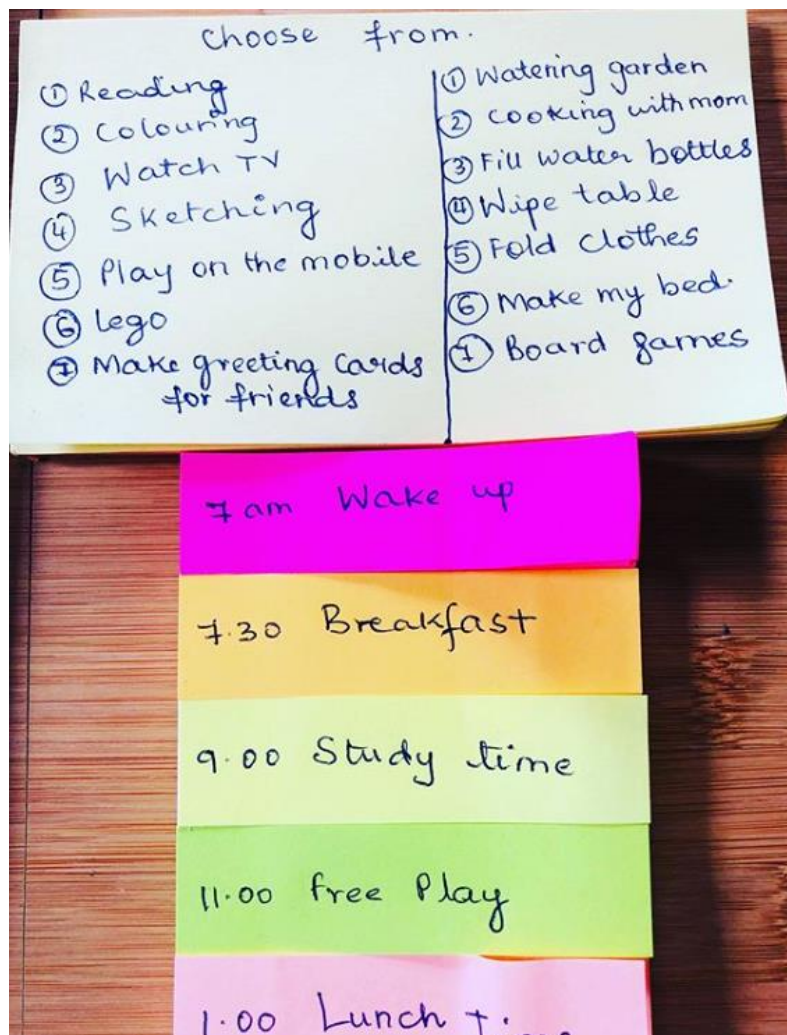 Choose from.
① Reading
② Colouring
③ Watch TV
④ Sketching
⑤ Play on the mobile
⑥ Lego
⑦ Make greeting cards
for friends
① Watering garden
② Cooking with mom
③ Fill water bottles
④ Wipe table
⑤ Fold clothes
⑥ Make my bed.
⑦ Board games
7 am Wake up
7.30 Breakfast
9.00 Study time
11.00 free Play
1.00 Lunch